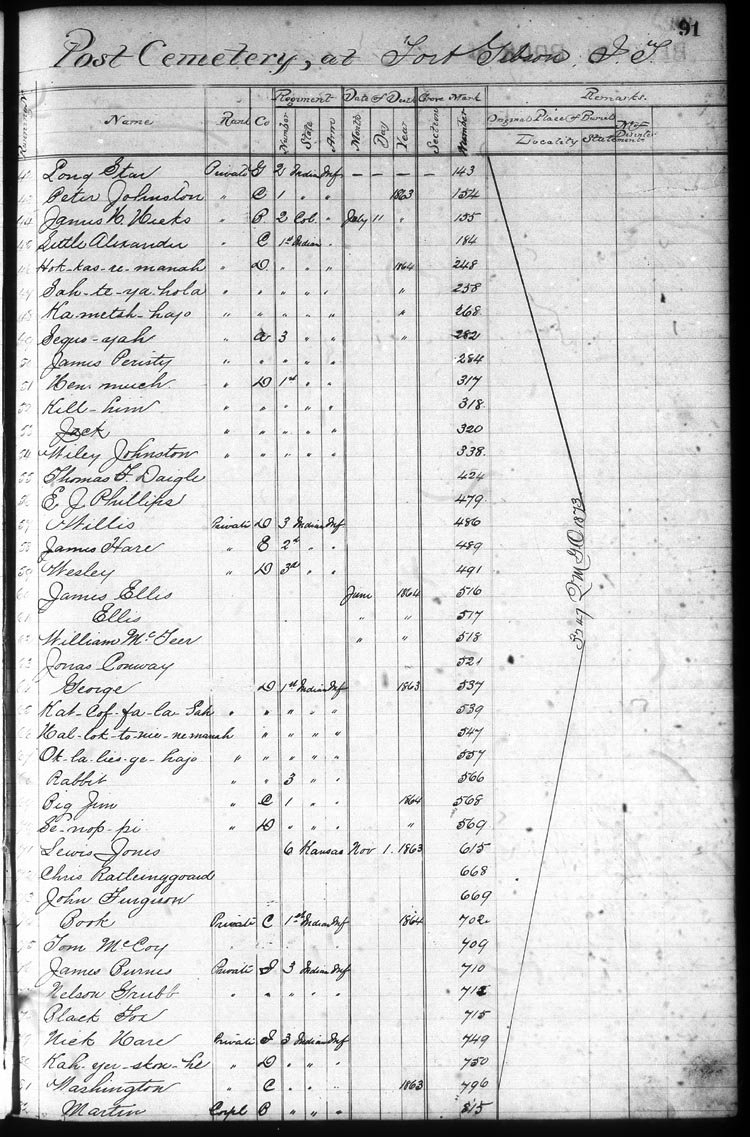 91
Post Cemetery, at Fort Gibson, I. T.
Regiment Date of Death Grave Mark Remarks.
Name Rank Co Number State Arm Month Day Year Section Number Original Place of Burial No of Disinter
Locality Statement
Long Star Private G 2 Indian Inf — — — — 143
Peter Johnston " C 1 " " 1863 154
James H. Hicks " B 2 Col. " July 11 " 155
Little Alexander " C 1st Indian " 184
Hok-kas-se-manah " D " " " 1864 248
Sah-te-ya-hola " " " " " " 258
Ka-metsh-hajo " " " " " " 268
Sequo-yah " A 3 " " " 282
James Peristy " " " " " 284
Hen-much " D 1st " " 317
Kill-him " " " " " 318
Jack " " " " " 320
Wiley Johnston " " " " " 338
Thomas F. Daigle 424
E J Phillips 479
Willis Private D 3 Indian Inf 486
James Hare " E 2d " " 489
Wesley " D 3d " " 491
James Ellis June 1864 516
Ellis " " 517
William McTeer " " 518
Jonas Conway 521
George D 1st Indian Inf 1863 537
Kat-Cof-fa-la-Sah " " " " " 539
Hal-lok-to-me-ne manah " " " " 547
Ok-la-lies-ge-hajo " " " " " 557
Rabbit " " 3 " " 566
Big Jim " C 1 " " 1864 568
Se-nop-pi " D " " " " 569
Lewis Jones 6 Kansas Nov 1. 1863 615
Chris Ratleinggourd 668
John Furguson 669
Book Private C 1st Indian Inf 1864 702
Tom McCoy 709
James Burnes Private I 3 Indian Inf 710
Nelson Grubb " " " " " 712
Black Fox 715
Nick Hare Private I 3 Indian Inf 749
Kah-yer-skon-he " D " " " 750
Washington " C " " " 1863 796
Martin Corpl B " " " 815
Q M G O 1873